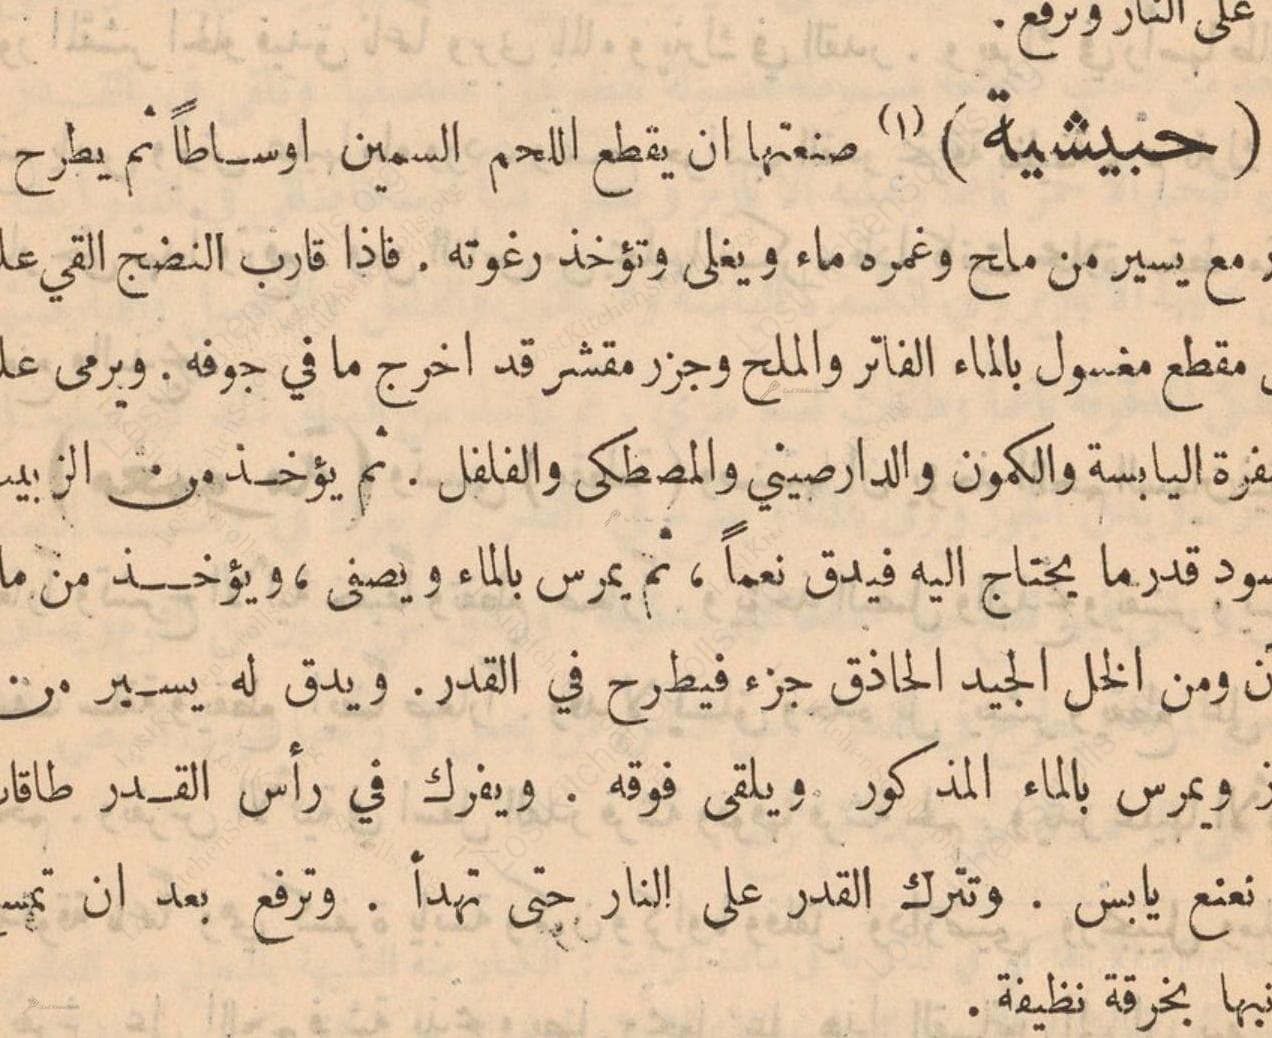 على النار وترفع .
( حبيشية ) (١) صنعتها ان يقطع اللحم السمين اوســاطاً ثم يطرح
مع يسير من ملح وغمره ماء ويغلى وتؤخذ رغوته . فاذا قارب النضج القي
مقطع مغسول بالماء الفاتر والملح وجزر مقشر قد اخرج ما في جوفه . ويرمى
اليابسة والكمون والدارصيني والمصطكى والفلفل . ثم يؤخــذ من
قدر ما يحتاج اليه فيدق نعماً ، ثم يمرس بالماء ويصفى ، ويؤخــذ من
ومن الخل الجيد الحاذق جزء فيطرح في القدر . ويدق له يســير من
ويمرس بالماء المذكور ويلقى فوقه . ويفرك في رأس القــدر
نعنع يابس . وتترك القدر على النار حتى تهدأ . وترفع بعد ان
بخرقة نظيفة .